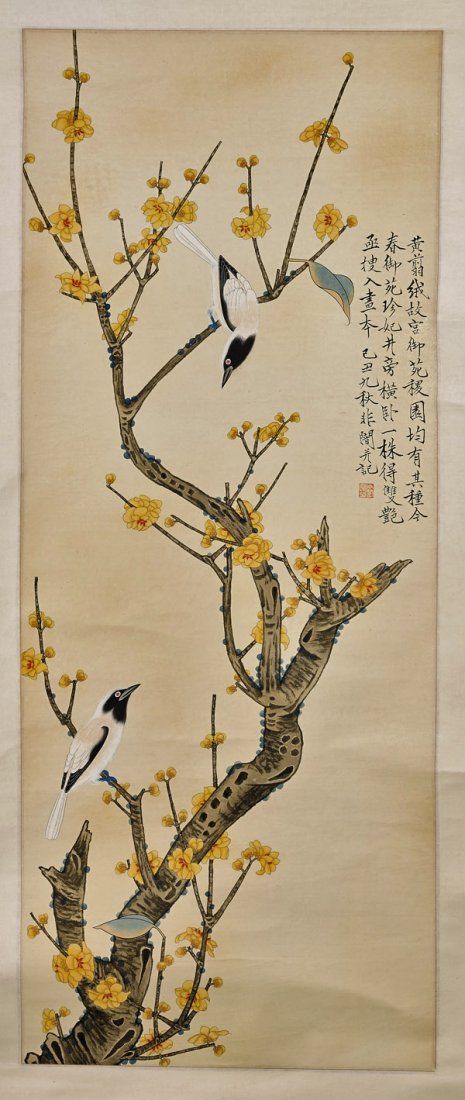 黄翦绒故宫御苑稷園均有其種今
春御苑珍妃井旁横卧一株得雙艷
亟搜入畫本 己丑九秋非闇并記